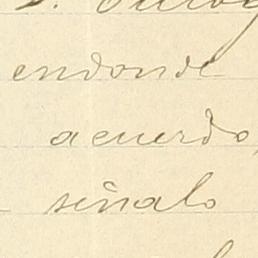 endonde
acuerdo,
señalo